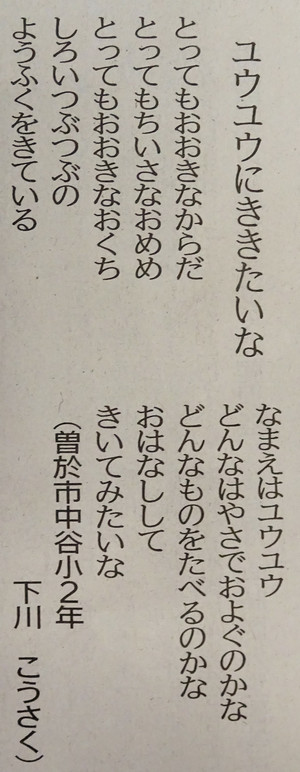 ユウユウにききたいな
とってもおおきなからだ
とってもちいさなおめめ
とってもおおきなおくち
しろいつぶつぶの
ようふくをきている
なまえはユウユウ
どんなはやさでおよぐのかな
どんなものをたべるのかな
おはなしして
きいてみたいな
（曽於市中谷小２年
下川　こうさく）